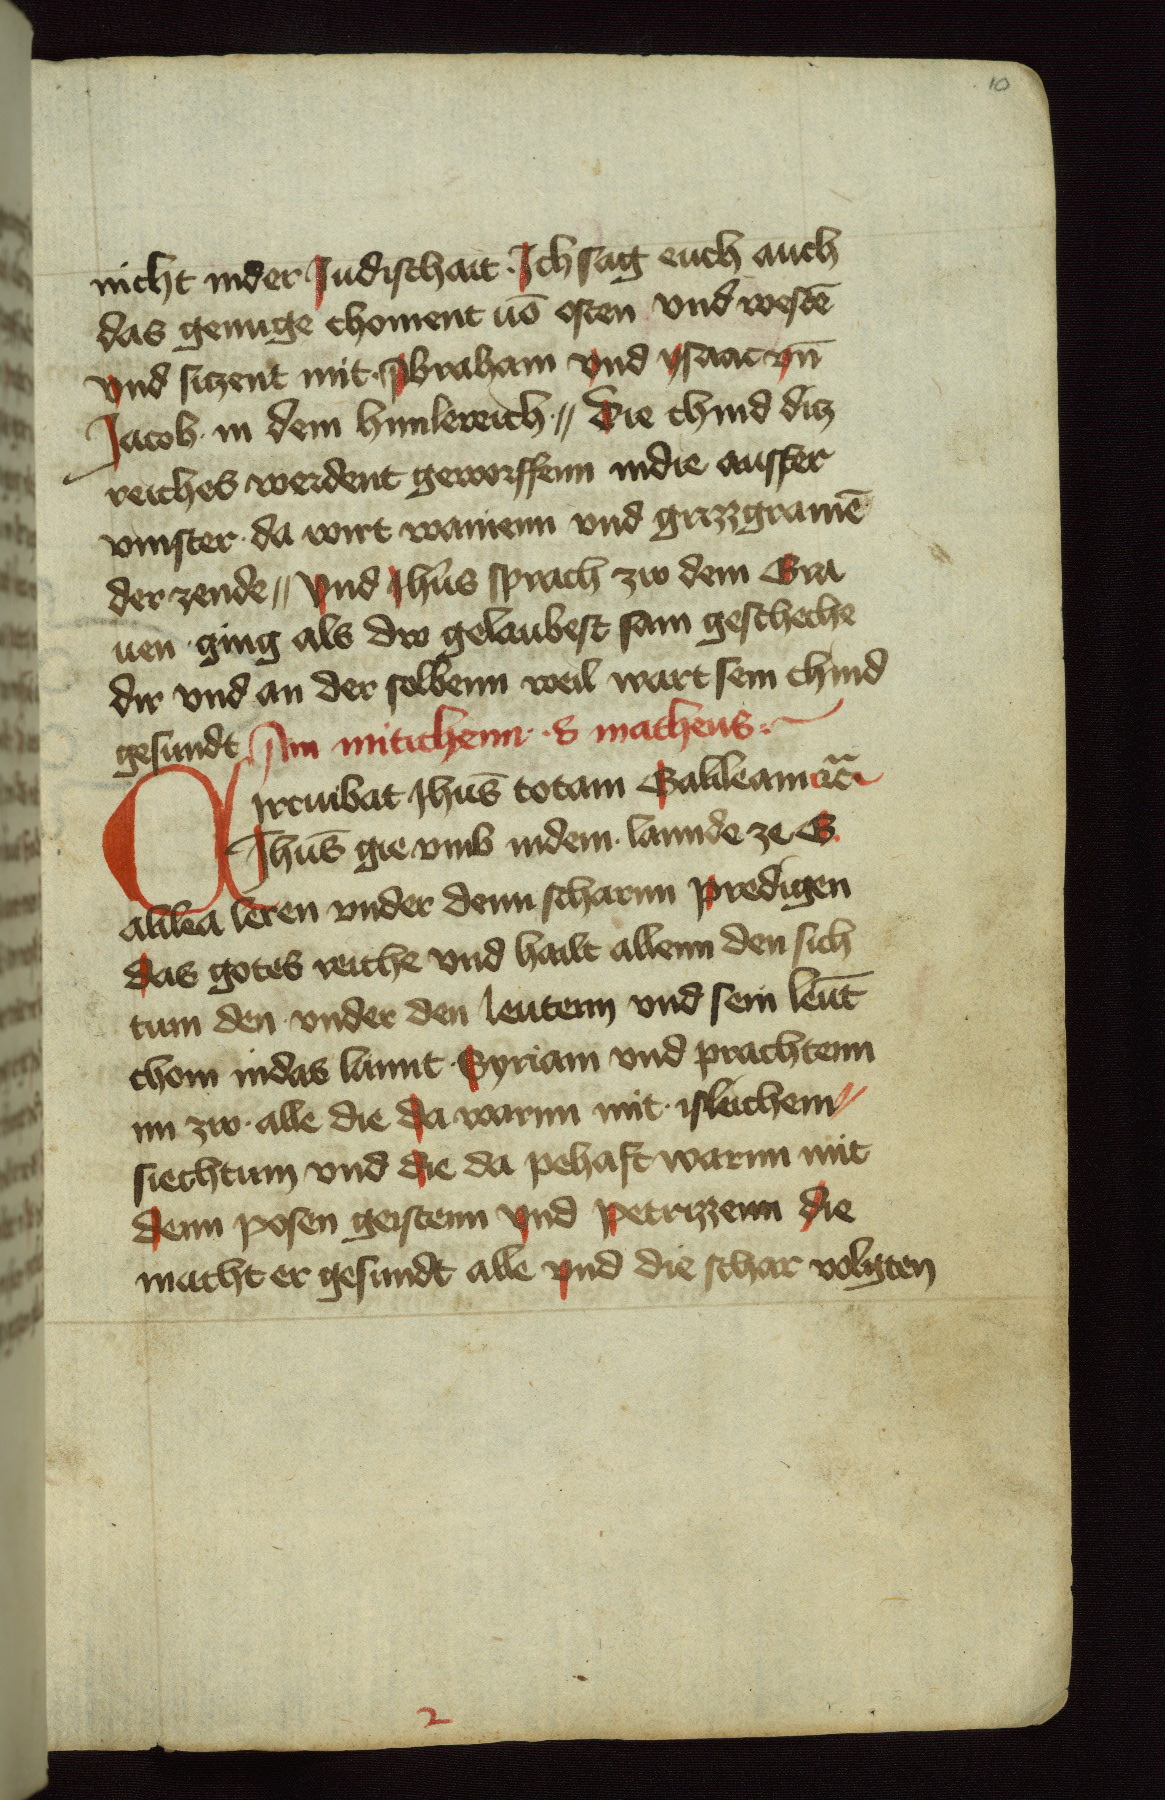 10
nicht inder Judischait · Ich sag euch auch
das genuge choment uō osten vnd westē
vnd siczent mit · Abraham vnd ysaac vn̄
Jacob · in dem himlereich · // Die chind dicz
reiches werdent geworffenn indie ausser
vinster · da wirt wainenn vnd grizzgramē
der zende // Vnd Jhūs sprach zw dem Gra
uen · ging als dw gelaubest sam gescheche
dir vnd an der selbenn weil wart sein chind
gesundt Am mitichenn · S matheus ·
Circuibat Jhūs totam Galileam ℞c̄
Jhūs gie vmb indem · lannde ze G
alilea leren vnder denn scharnn predigen
das gotes reiche vnd hailt allenn den sich
tum den · vnder den leutenn vnd sein leūt
chom indas lannt · Syriam vnd prachtenn
im zw · alle die da warnn mit · isleichem //
siechtum vnd die da pehaft warnn mit
denn posen geistenn vnd petrizzenn die
macht er gesundt alle vnd die schar volgten
2